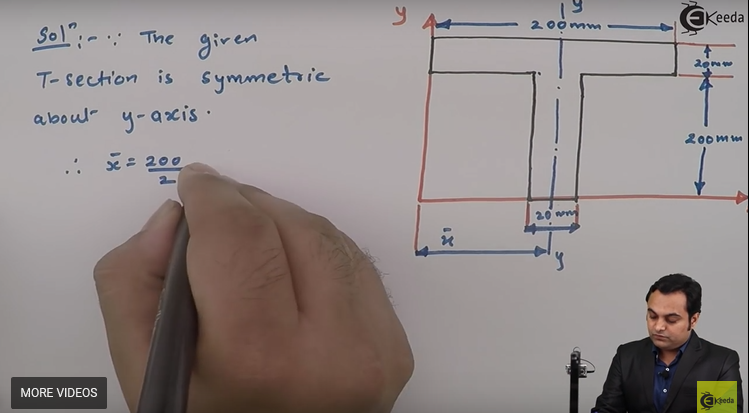 Solⁿ :- ∵ The given
T-section is symmetric
about y-axis.
∴ x̄ = 200/2
y
y
200mm
20mm
200mm
20mm
x̄
y
EKeeda
MORE VIDEOS
EKeeda